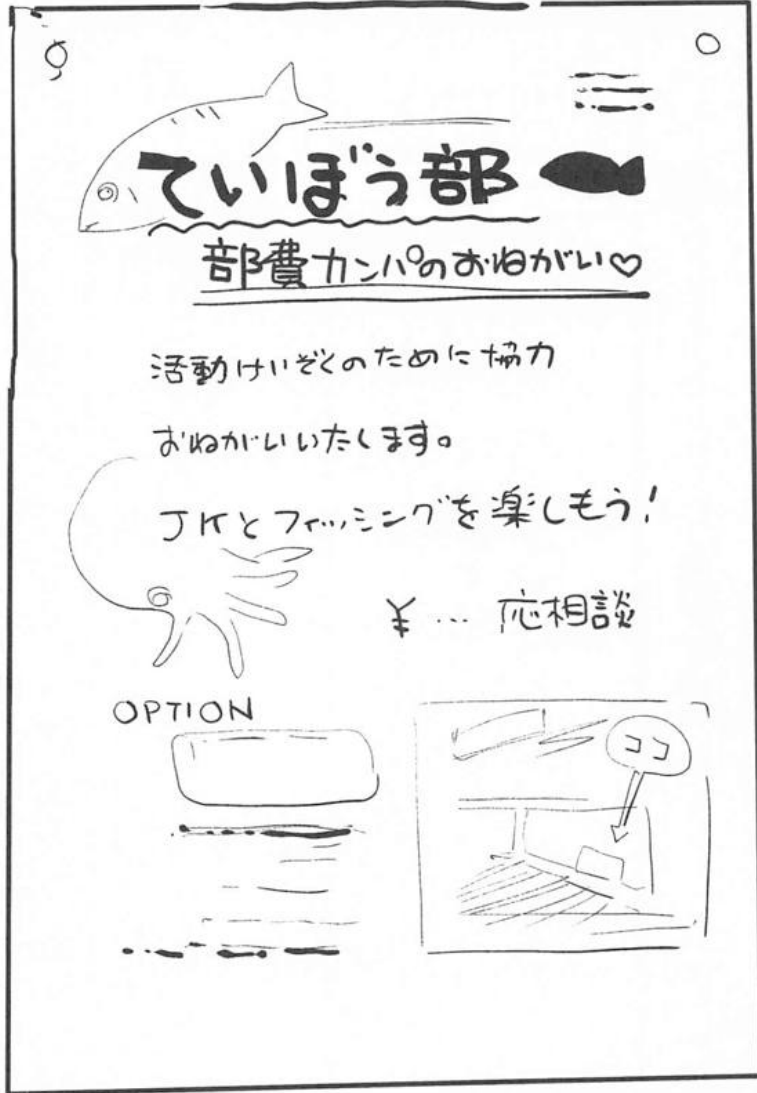 ていぼう部
部費カンパのおねがい♡
活動けいぞくのために協力
おねがいいたします。
JKとフィッシングを楽しもう!
¥… 応相談
OPTION
ココ